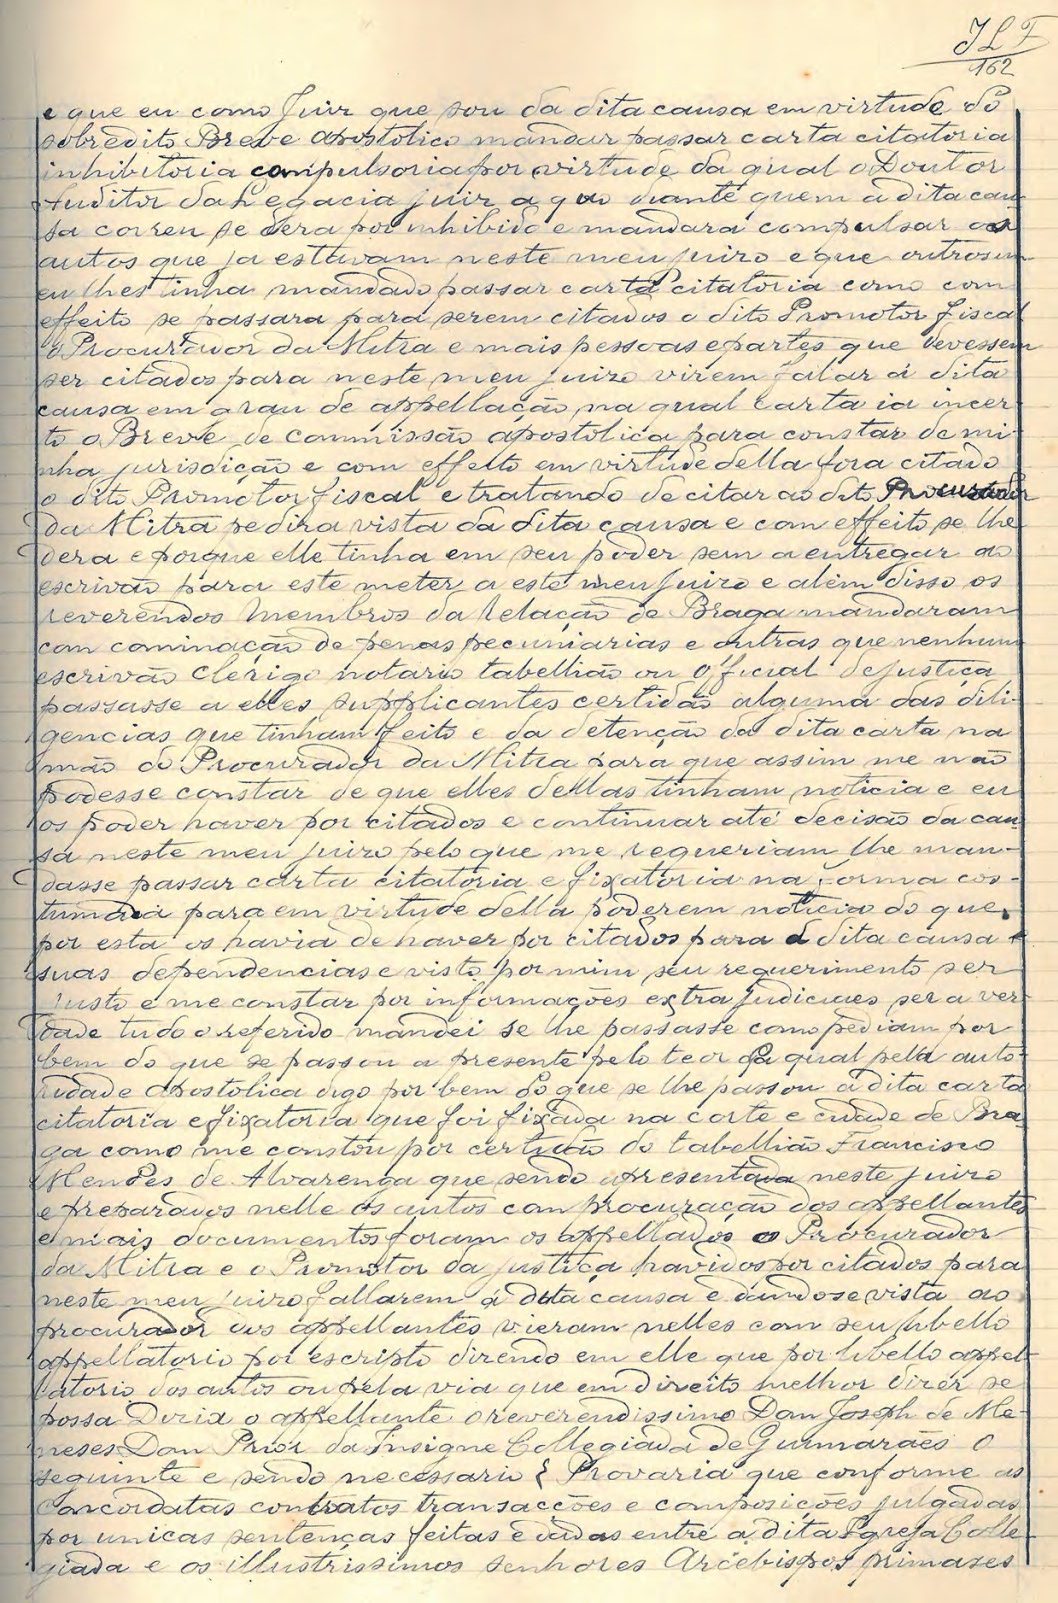 JLF
162
e que eu como Juiz que sou da dita causa em virtude do
sobredito Breve apostolico mandar passar carta citatoria
inhibitoria compulsoria por virtude da qual o Doutor
Auditor da Legacia juiz a quo diante quem a dita cau-
sa correu se dera por inhibido e mandara compulsar os
autos que ja estavam neste meu juizo e que outrosim
eu lhes tinha mandado passar carta citatoria como com
effeito se passara para serem citados o dito Promotor fiscal
o Procurador da Mitra e mais pessoas e partes que devessem
ser citados para neste meu juizo virem falar á dita
causa em grau de appellação na qual carta ia incer-
to o Breve de commissão apostolica para constar de mi-
nha jurisdição e com effeito em virtude della fora citado
o dito Promotor fiscal e tratando de citar ao dito Procurador
da Mitra pedira vista da dita causa e com effeito se lhe
dera e porque elle tinha em seu poder sem a entregar ao
escrivão para este meter a este meu juizo e além disso os
reverendos membros da Relação de Braga mandaram
com cominação de penas pecuniarias e outras que nenhum
escrivão clerigo notario tabellião ou official de justiça
passasse a elles supplicantes certidão alguma das dili-
gencias que tinham feito e da detenção da dita carta na
mão do Procurador da Mitra para que assim me não
podesse constar de que elles dellas tinham noticia e eu
os poder haver por citados e continuar até decisão da cau-
sa neste meu juizo pelo que me requeriam lhe man-
dasse passar carta citatoria e fixatoria na forma cos-
tumada para em virtude della poderem noticia do que
por esta os havia de haver por citados para a dita causa e
suas dependencias e visto por mim seu requerimento ser
justo e me constar por informações extrajudiciaes ser a ver-
dade tudo o referido mandei se lhe passasse como pediam por
bem do que se passou a presente pelo teor da qual pela auto-
ridade apostolica digo por bem do que se lhe passou a dita carta
citatoria e fixatoria que foi fixada na corte e cidade de Bra-
ga como me constou por certidão do tabellião Francisco
Mendes de Alvarenga que sendo apresentada neste juizo
e preparados nelle os autos com procuração dos appellantes
e mais documentos foram os appellados o Procurador
da Mitra e o Promotor da justiça havidos por citados para
neste meu juizo fallarem á dita causa e dandose vista ao
procurador dos appellantes vieram nelles com seu libello
appellatorio por escripto dizendo em elle que por libello appel-
latorio dos autos ou pela via que em direito melhor dizer se
possa Dizia o appellante o reverendissimo Dom Joseph de Me-
neses Dom Prior da Insigne Collegiada de Guimarães o
seguinte e sendo necessario { Provaria que conforme as
concordatas contratos transacções e composições julgadas
por unicas sentenças feitas e dadas entre a dita Egreja Colle-
giada e os illustrissimos senhores Arcebispos primazes